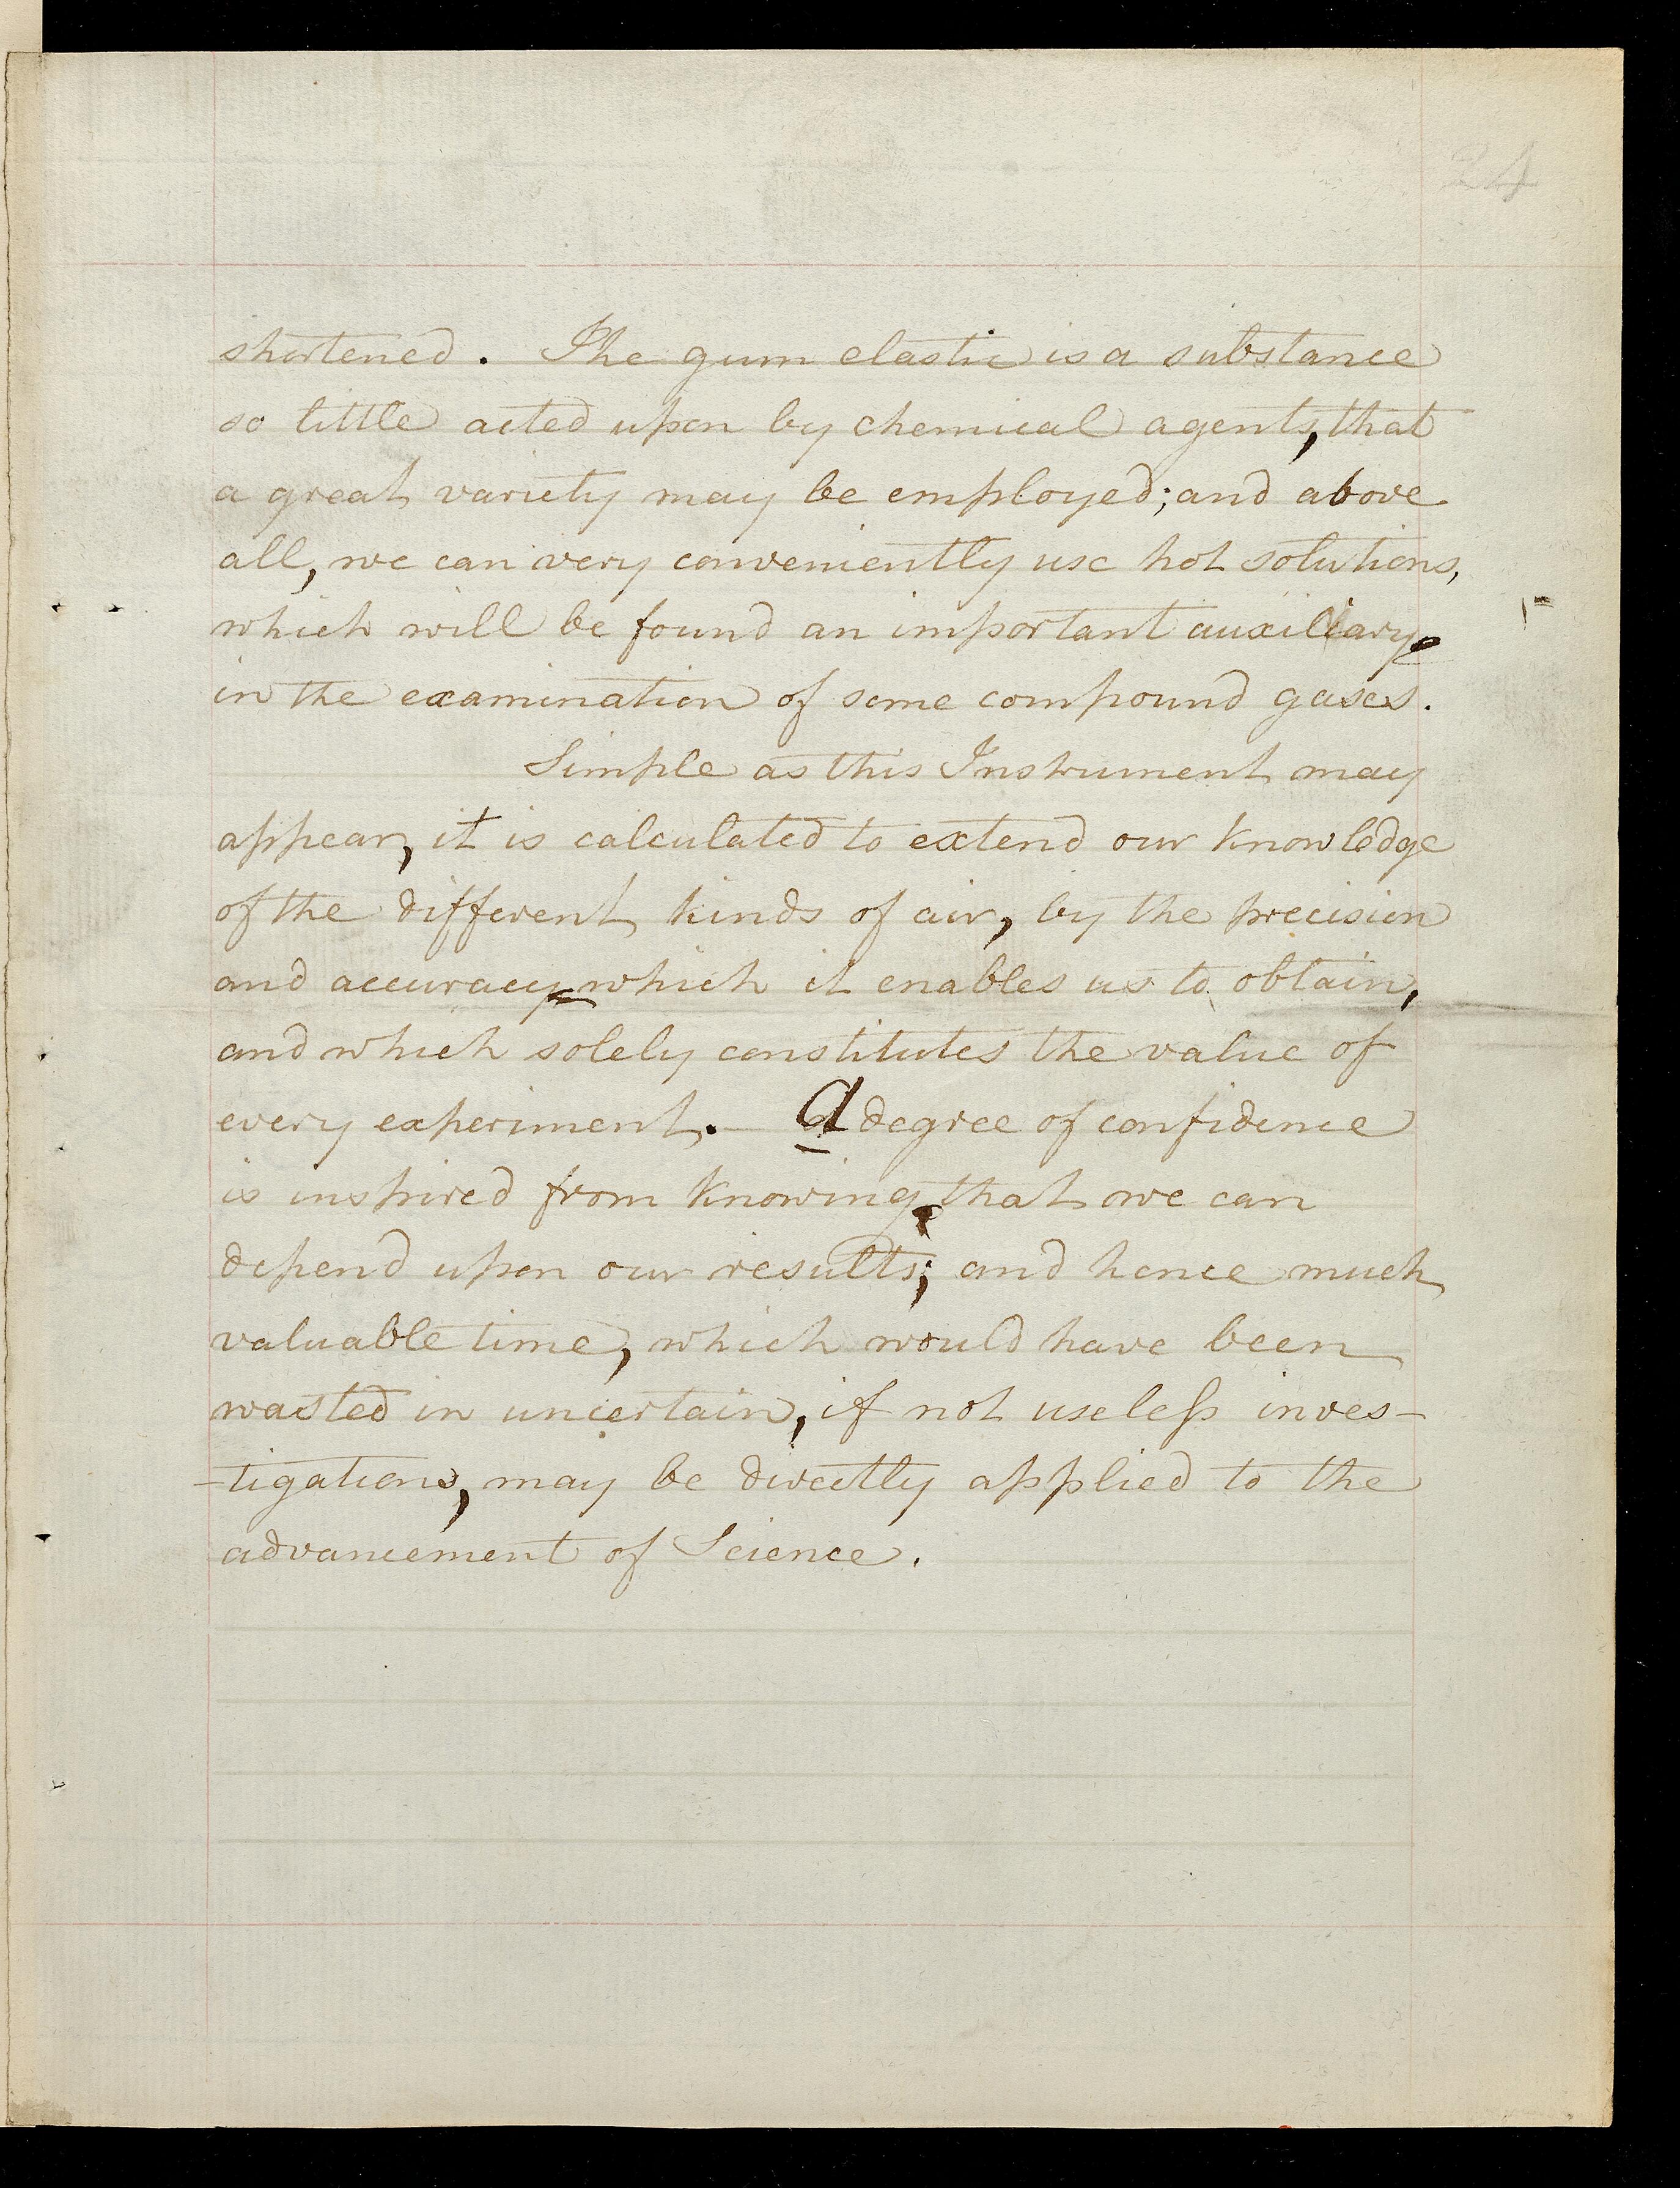 24
shortened. The gum elastic is a substance
so little acted upon by chemical agents, that
a great variety may be employed; and above
all, we can very conveniently use hot solutions,
which will be found an important auxiliary
in the examination of some compound gases.
Simple as this Instrument may
appear, it is calculated to extend our knowledge
of the different kinds of air, by the precision
and accuracy which it enables us to obtain,
and which solely constitutes the value of
every experiment. A degree of confidence
is inspired from knowing that we can
depend upon our results; and hence much
valuable time, which would have been
wasted in uncertain, if not useless inves-
-tigations, may be directly applied to the
advancement of Science.